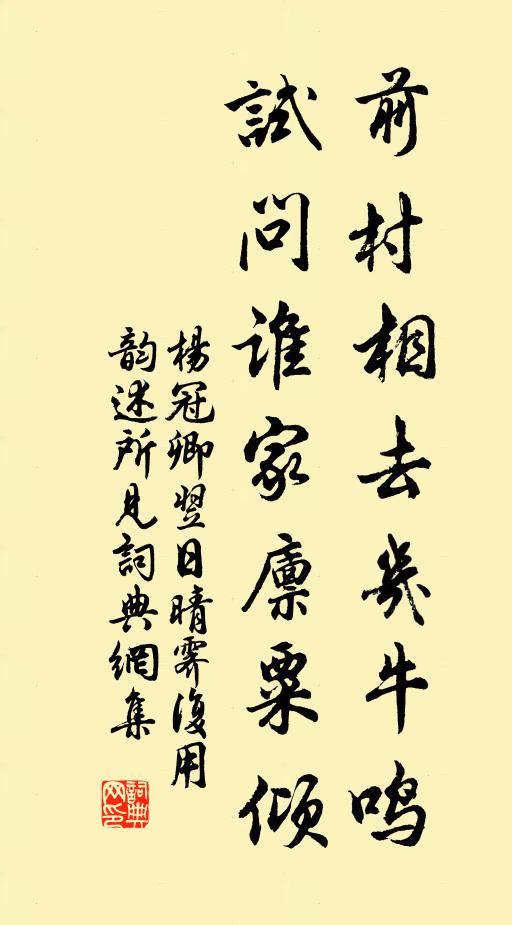 前村相去幾牛鳴
試問誰家廪粟傾
楊冠卿翌日晴霽復用
韵述所見詞典網集
詞典网印